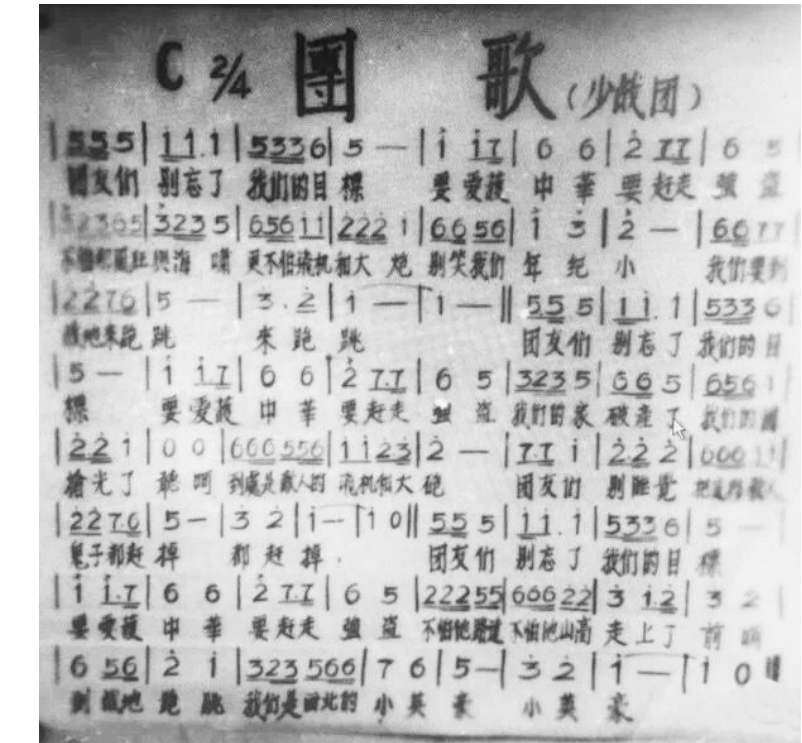 C 2/4 團 歌 (少战团)
| 5 5 5 | 1 1 . 1 | 5 3 3 6 | 5 — | i i 7 | 6 6 | 2 7 7 | 6 5
團友们 别忘了 我们的目標 要愛護 中華 要赶走 強盗
3 2 3 6 5 | 3 2 3 5 | 6 5 6 1 1 | 2 2 2 1 | 6 6 5 6 | i 3 | 2 — | 6 6 7 7
不怕 狂與海嘯 更不怕飛机和大炮 别笑我们 年纪小 我们要到
| 2 2 7 6 | 5 — | 3 . 2 | i — | i — || 5 5 5 | 1 1 . 1 | 5 3 3 6
戰地來跑跳 來跑跳 团友们 别忘了 我们的目
| 5 — | i i 7 | 6 6 | 2 7 . 7 | 6 5 | 3 2 3 5 | 6 6 5 | 6 5 6 1
標 要愛護 中華 要赶走 強盗 我们的家 破產了 我们的國
| 2 2 i | 0 0 | 6 6 6 5 5 6 | 1 1 2 3 | 2 — | 7 . 7 i | 2 . 2 2 | 6 6 6 1 1
搶光了 聽呵 到處是敵人的 飛机和大砲 团友们 别睡觉 把 敵人
| 2 2 7 . 6 | 5 — | 3 2 | i — | i 0 || 5 5 5 | 1 1 . 1 | 5 3 3 6 | 5 —
鬼子都赶掉 都赶掉 . 团友们 别忘了 我们的目標
| i i . 7 | 6 6 | 2 7 7 | 6 5 | 2 2 2 5 5 | 6 6 6 2 2 | 3 1 . 2 | 3 2 |
要愛護 中華 要赶走 強盗 不怕他路遠 不怕他山高 走上了 前哨
| 6 5 6 | 2 i | 3 2 3 5 6 6 | 7 6 | 5 — | 3 2 | i — | i 0 ||
到戰地跑跳 我们是西北的 小英豪 小英豪